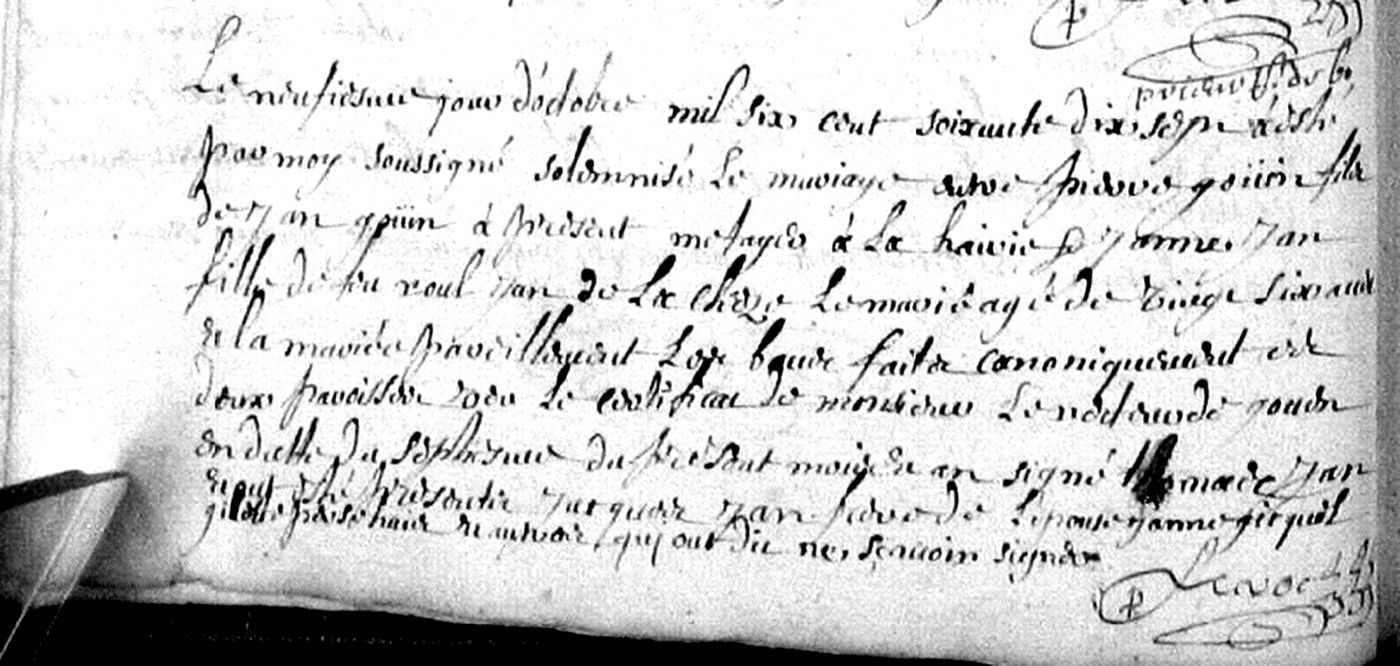 Le neufiesme jour d'octobre mil six cent soixante dix sept a esté
par moy soussigné solemnisé le mariage entre pierre goüin fils
de Jan goüin à present metayer à la hairie & Janne Jan
fille de feu roul Jan de la cheze le marié agé de vingt six ans
et la mariée pareillement les banс faits canoniquement es
deux paroisses veu le certificat de monsieur le recteur de gouen
en datte du septiesme du present mois et an signé Jan
et ont esté presents Jacques Jan frere de lepouse Janne gicquel
et autres qui ont dit ne sçavoir signer